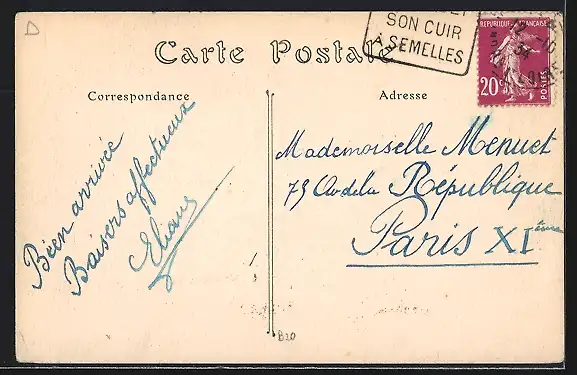 D
SON CUIR
À SEMELLES
REPUBLIQUE FRANCAISE
20c
POSTES
Carte Postale
Correspondance
Adresse
Bien arrivée
Baisers affectueux
Eliane
Mademoiselle Menuet
75 Av de la République
Paris XIème
B20